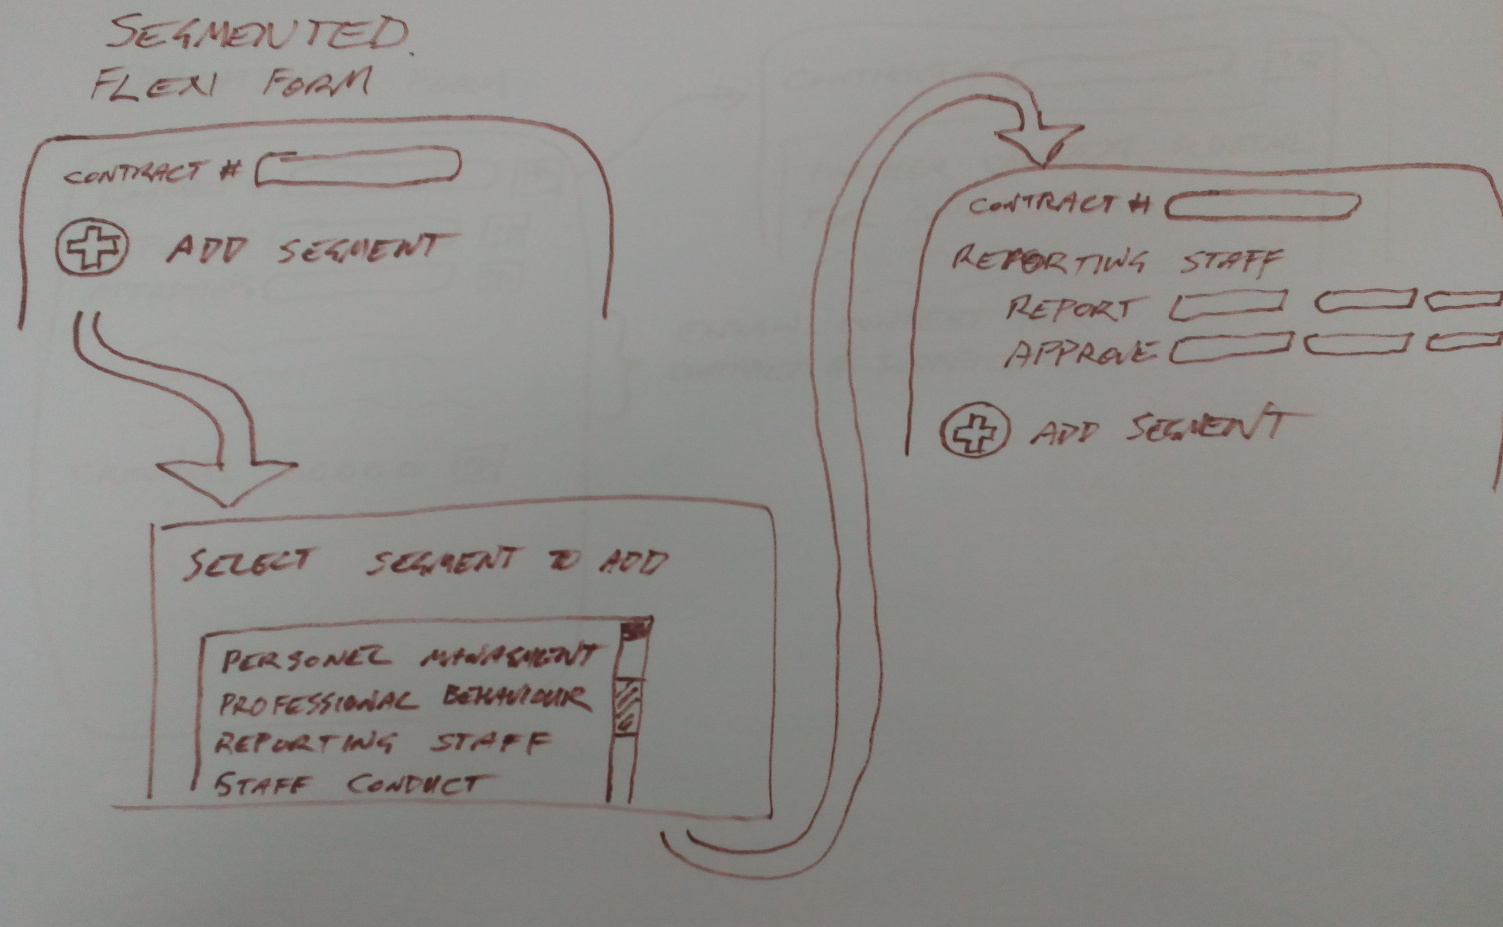 SEGMENTED
FLEXI FORM
CONTRACT #
ADD SEGMENT
SELECT SEGMENT TO ADD
PERSONEL MANAGMENT
PROFESSIONAL BEHAVIOUR
REPORTING STAFF
STAFF CONDUCT
CONTRACT #
REPORTING STAFF
REPORT
APPROVE
ADD SEGMENT